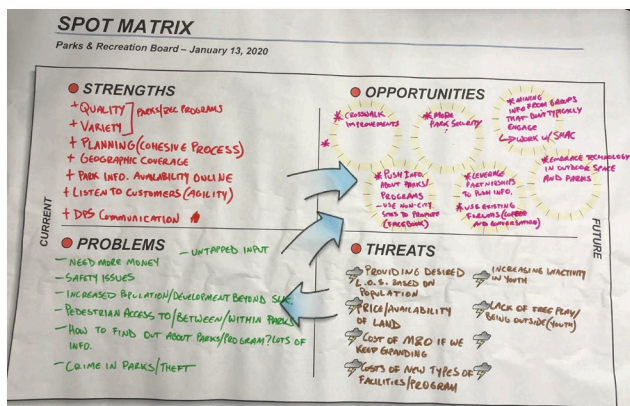 SPOT MATRIX
Parks & Recreation Board – January 13, 2020
STRENGTHS
+ QUALITY
+ VARIETY
PARKS/REC PROGRAMS
+ PLANNING (COHESIVE PROCESS)
+ GEOGRAPHIC COVERAGE
+ PARK INFO. AVAILABILITY ONLINE
+ LISTEN TO CUSTOMERS (AGILITY)
+ DPS COMMUNICATION
OPPORTUNITIES
* CROSSWALK
IMPROVEMENTS
*
* MORE
PARK SECURITY
* MINING
INFO FROM GROUPS
THAT DON'T TYPICALLY
ENGAGE
↳ WORK W/ SHAC
* PUSH INFO.
ABOUT PARKS/
PROGRAMS
- USE NON-CITY
SITES TO PROMOTE
(FACEBOOK)
* LEVERAGE
PARTNERSHIPS
TO PUSH INFO.
* USE EXISTING
FORUMS (COFFEE
AND CONVERSATION)
* EMBRACE TECHNOLOGY
IN OUTDOOR SPACE
AND PARKS
CURRENT
FUTURE
PROBLEMS
- UNTAPPED INPUT
- NEED MORE MONEY
- SAFETY ISSUES
- INCREASED POPULATION/DEVELOPMENT BEYOND
- PEDESTRIAN ACCESS TO/BETWEEN/WITHIN PARKS
- HOW TO FIND OUT ABOUT PARKS/PROGRAM? LOTS OF
INFO.
- CRIME IN PARKS/THEFT
THREATS
PROVIDING DESIRED
L.O.S. BASED ON
POPULATION
PRICE/AVAILABILITY
OF LAND
COST OF M&O IF WE
KEEP EXPANDING
COSTS OF NEW TYPES OF
FACILITIES/PROGRAM
INCREASING INACTIVITY
IN YOUTH
LACK OF FREE PLAY/
BEING OUTSIDE (YOUTH)